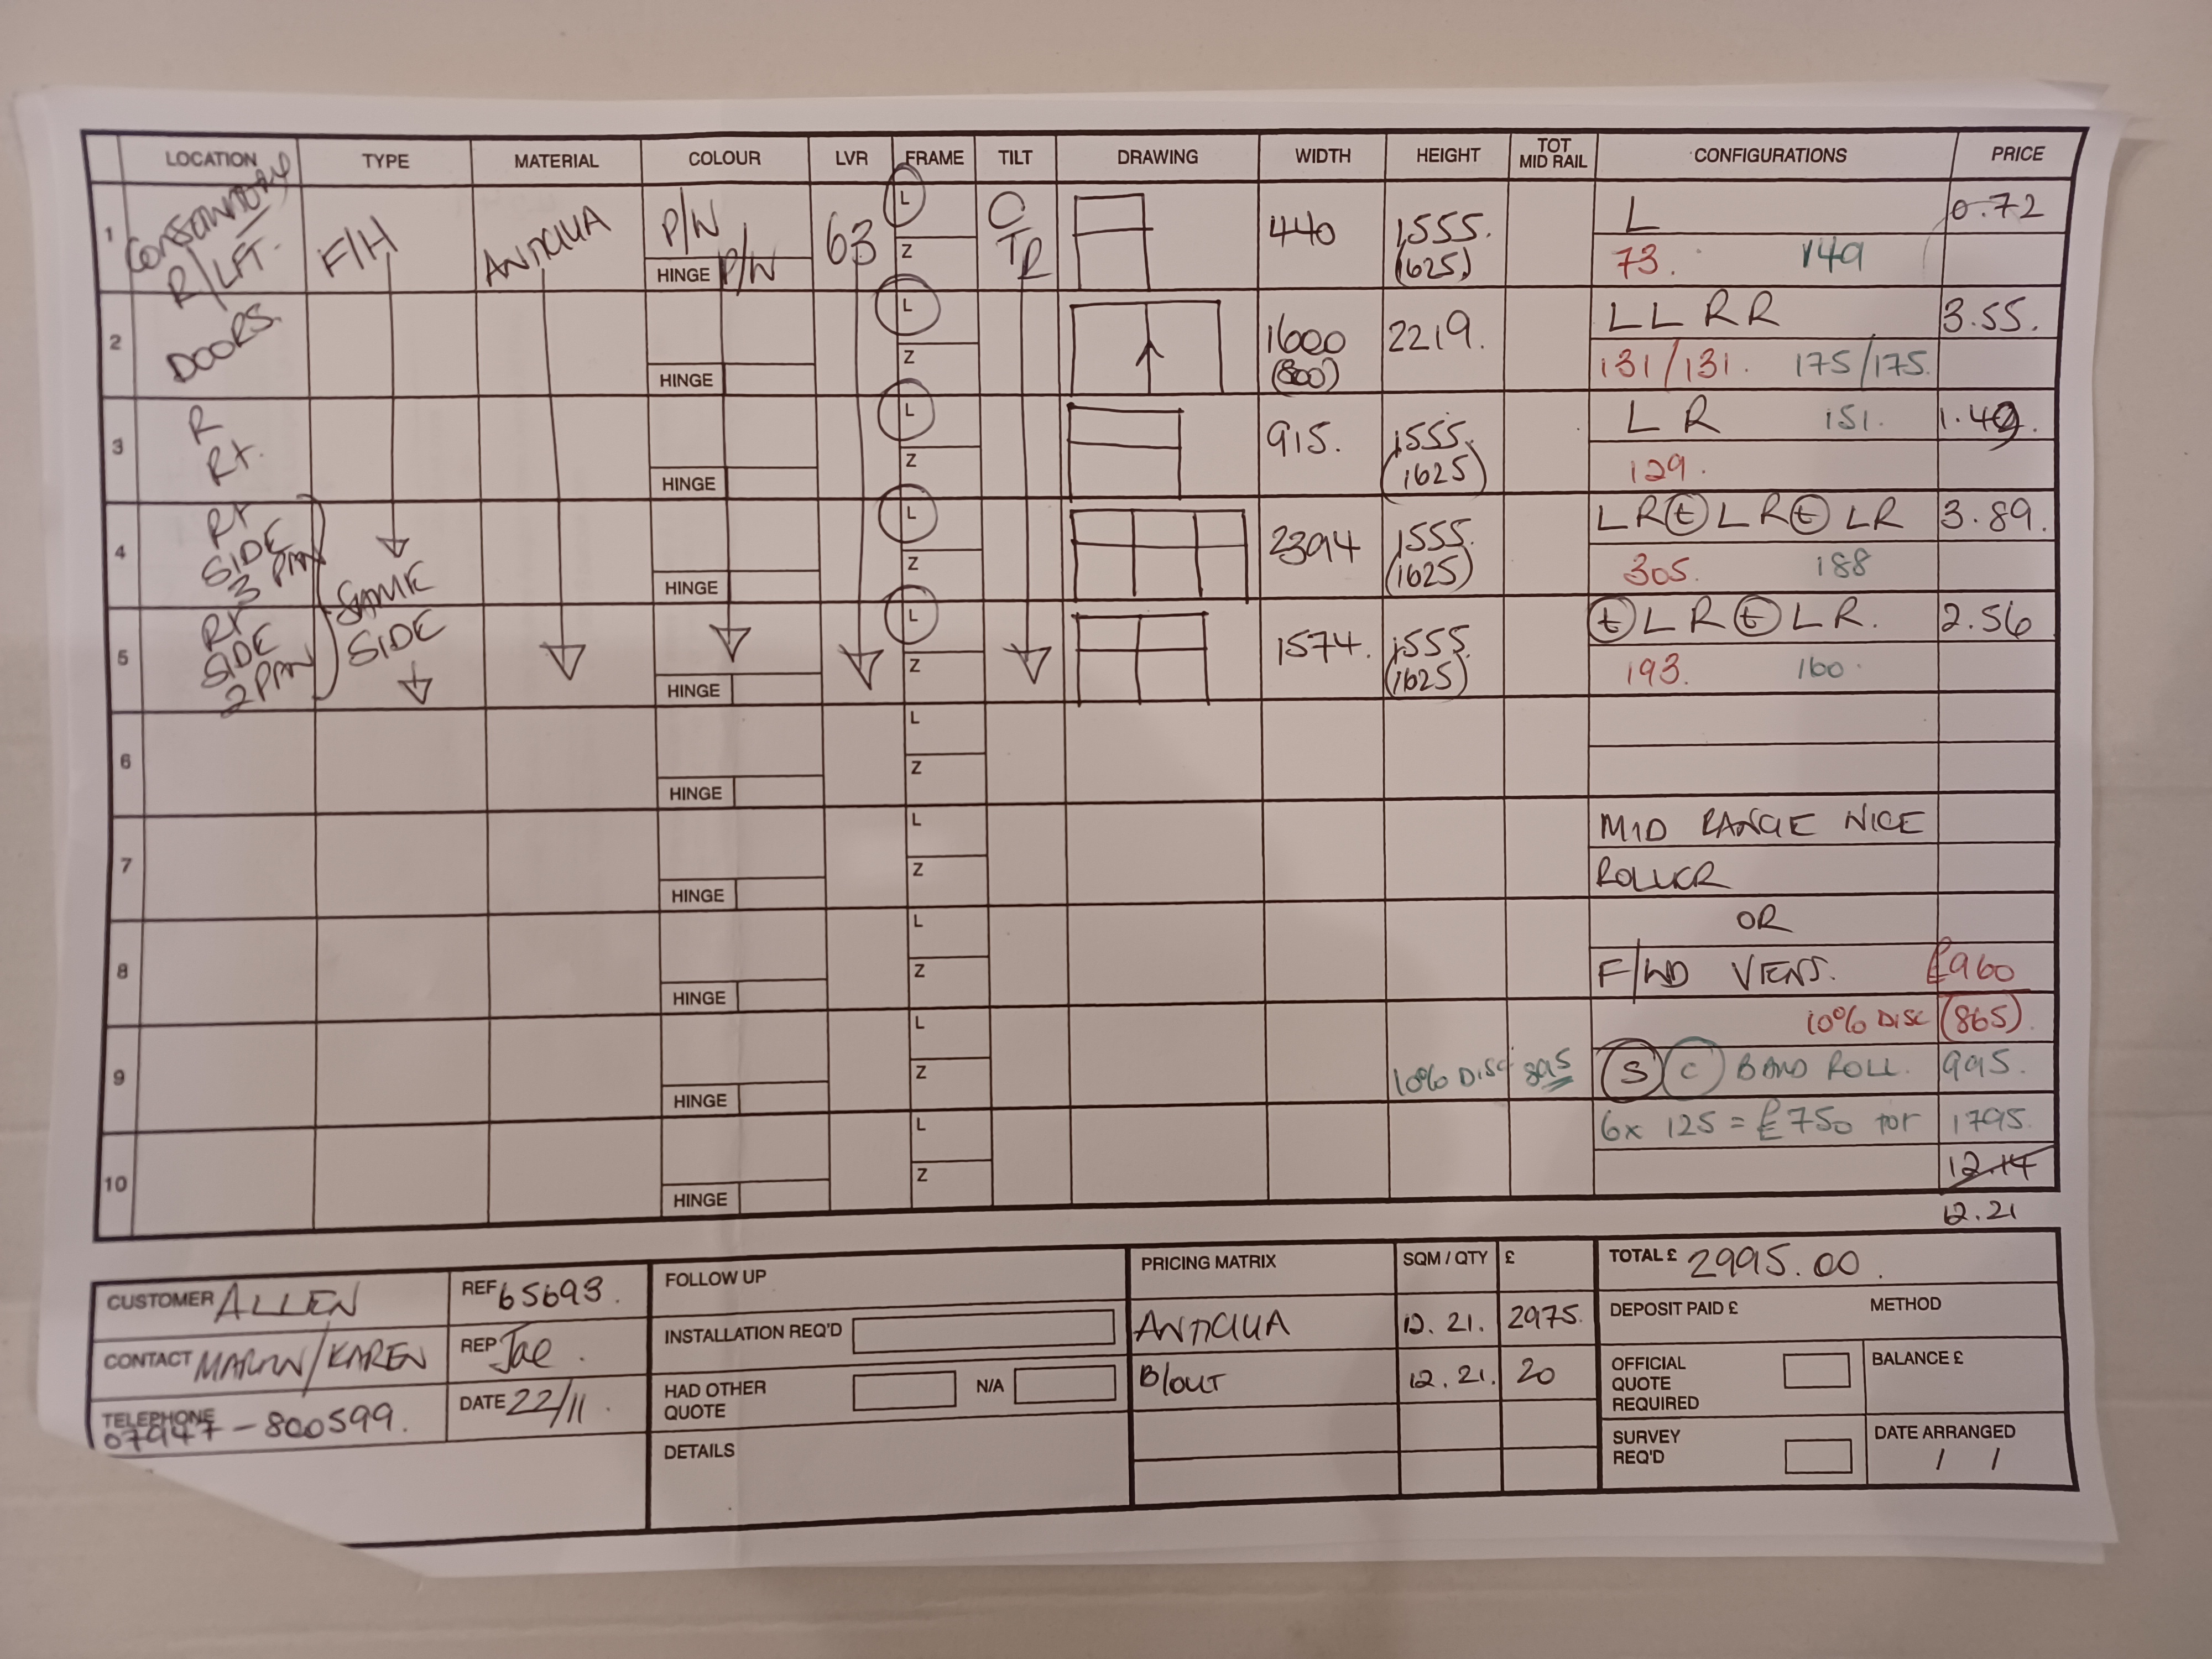 LOCATION TYPE MATERIAL COLOUR LVR FRAME TILT DRAWING WIDTH HEIGHT TOT MID RAIL CONFIGURATIONS PRICE
1 CONSERVATORY R/LFT. F/H ANTIGUA P/W HINGE P/W 63 L Z C TR 440 1555. (1625) L 0.72
73. 149
2 DOORS. HINGE L Z 1600 (800) 2219. LL RR 3.55.
131/131. 175/175.
3 R Rt. HINGE L Z 915. 1555. (1625) L R 151. 1.49.
129.
4 Rt SIDE 3 PAN HINGE L Z 2394 1555. (1625) LR t LR t LR 3.89.
305. 188
5 Rt SIDE 2 PAN SAME SIDE HINGE L Z 1574. 1555. (1625) t L R t L R. 2.56
193. 160.
6 HINGE L Z
7 HINGE L Z MID RANGE NICE
ROLLER
8 HINGE L Z OR
F/WD VENS. £960
10% DISC (865).
9 HINGE L Z 10% DISC 895 S C BAND ROLL. 995.
10 HINGE L Z 6x 125 = £750 TOT 1795.
12.14
12.21
CUSTOMER ALLEN REF 65693.
CONTACT MARTIN/KAREN REP Jae.
TELEPHONE 07947-800599. DATE 22/11.
FOLLOW UP
INSTALLATION REQ'D
HAD OTHER QUOTE N/A
DETAILS
PRICING MATRIX SQM / QTY £
ANTIGUA 12.21. 2975.
B/OUT 12.21. 20
TOTAL £ 2995.00.
DEPOSIT PAID £ METHOD
OFFICIAL QUOTE REQUIRED BALANCE £
SURVEY REQ'D DATE ARRANGED
/ /